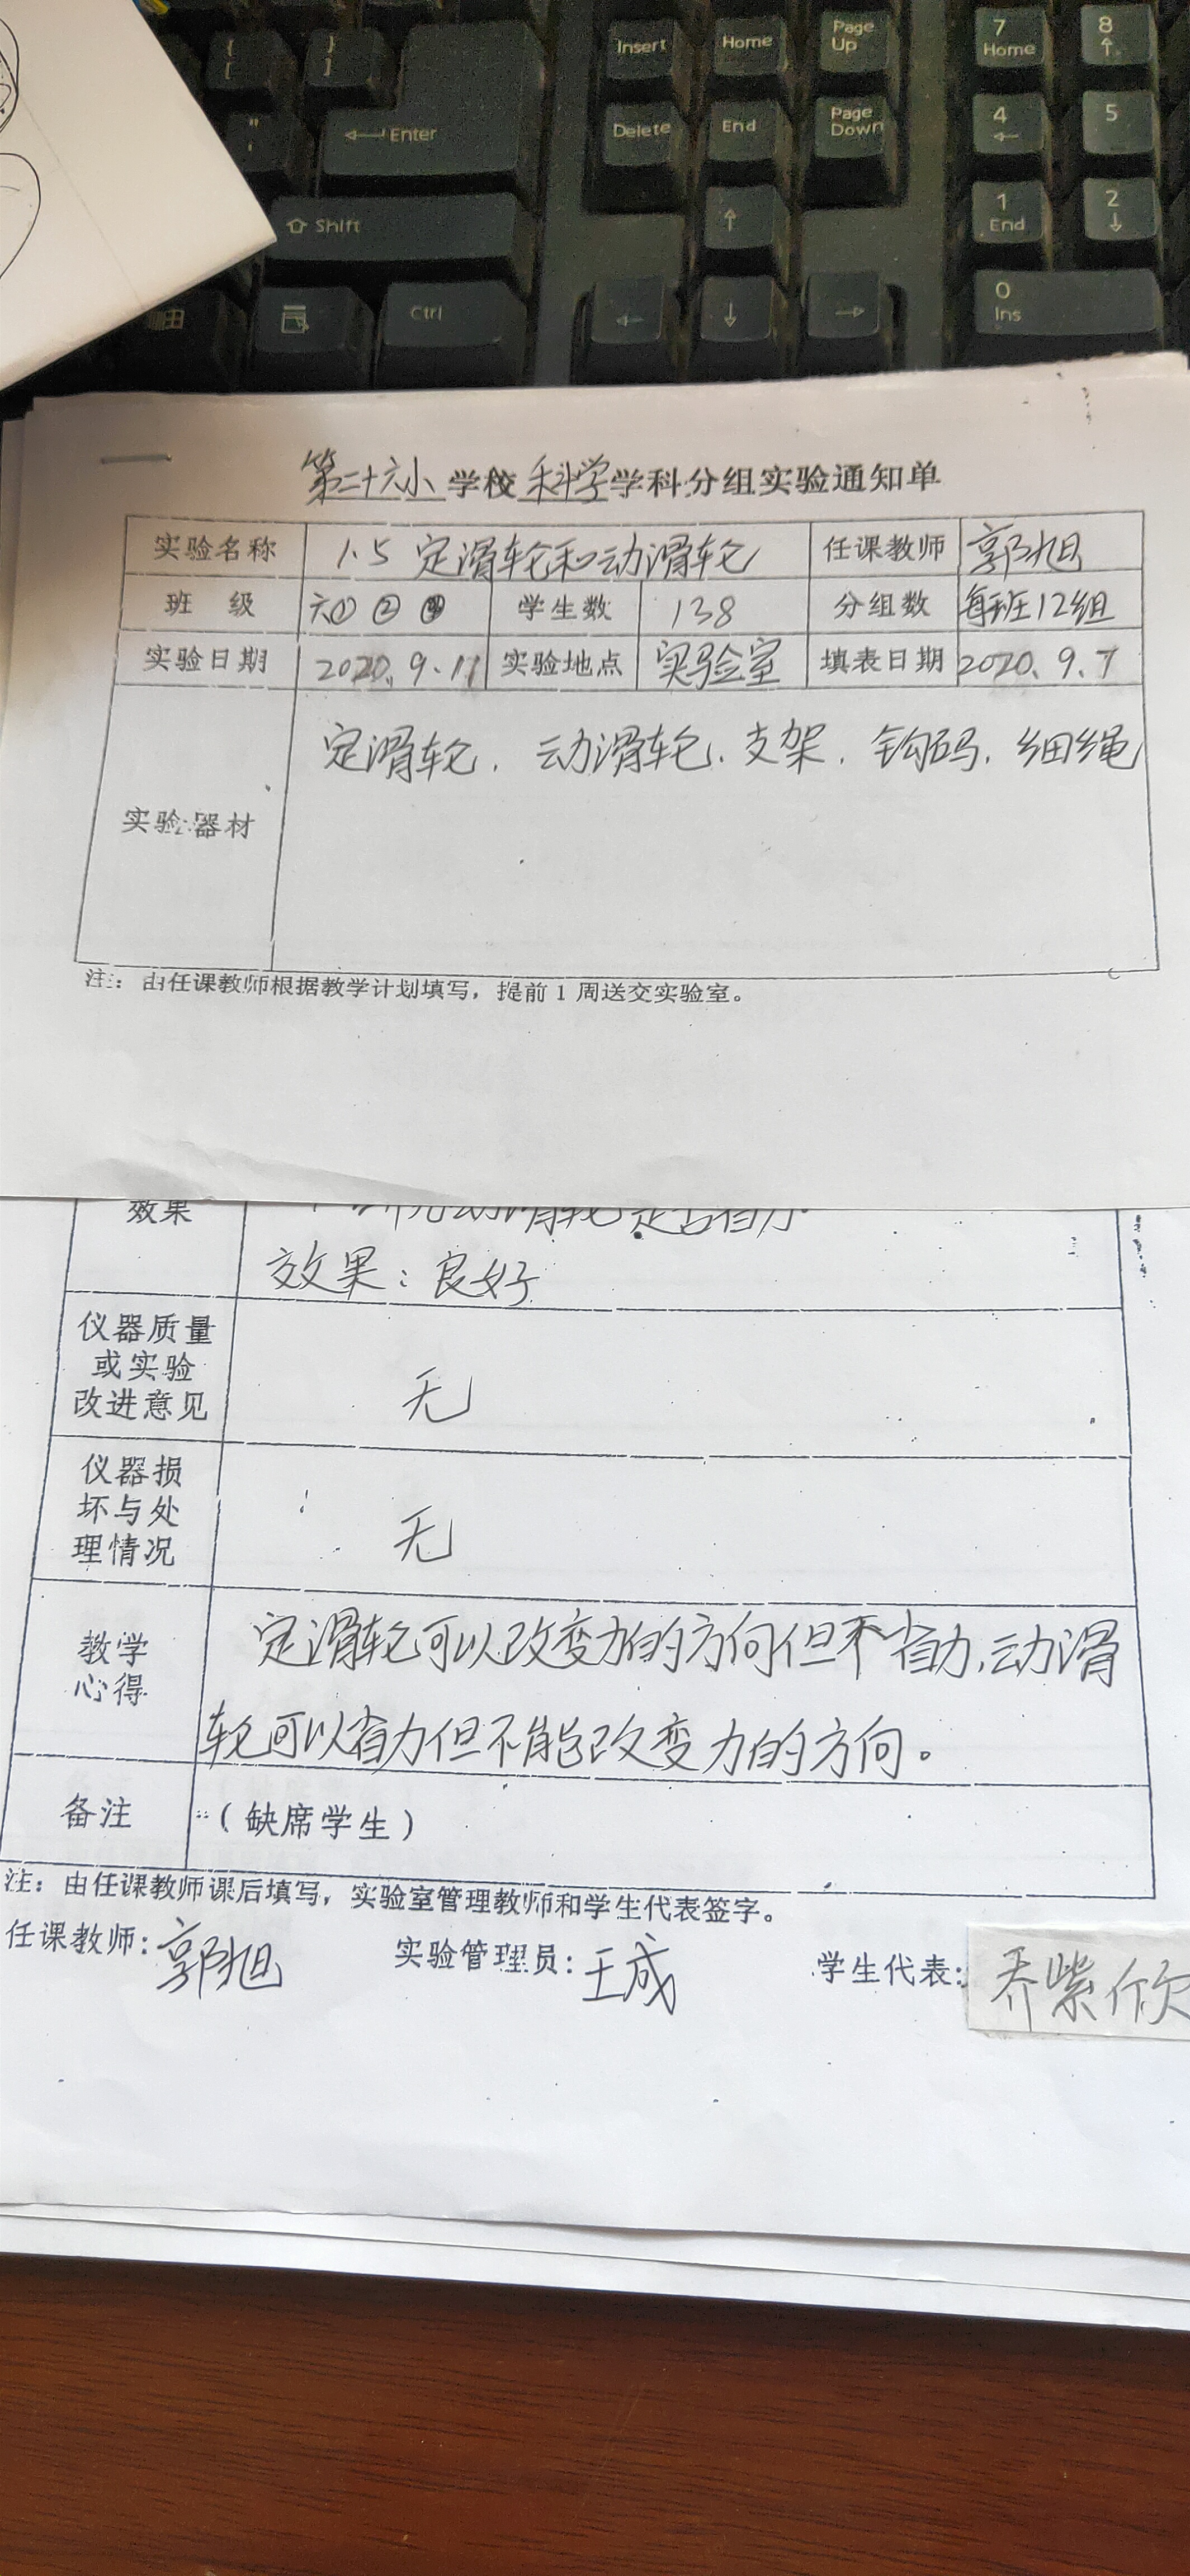 { }
[ ]
Insert Home Page Up 7 Home 8
" '
Enter
Delete End Page Down 4 5
Shift
1 End 2
Ctrl
0 Ins
第二十六小学校科学学科分组实验通知单
实验名称 1.5 定滑轮和动滑轮 任课教师 郭旭
班 级 六① ② 学生数 138 分组数 每班12组
实验日期 2020.9.11 实验地点 实验室 填表日期 2020.9.7
实验器材 定滑轮、动滑轮、支架、钩码、细绳
注:由任课教师根据教学计划填写,提前1周送交实验室。
效果 动滑轮是否省力
效果:良好
仪器质量
或实验
改进意见
无
仪器损
坏与处
理情况
无
教学
心得
定滑轮可以改变力的方向但不省力,动滑
轮可以省力但不能改变力的方向。
备注 (缺席学生)
注:由任课教师课后填写,实验室管理教师和学生代表签字。
任课教师:郭旭 实验管理员:王成 学生代表:乔紫欣